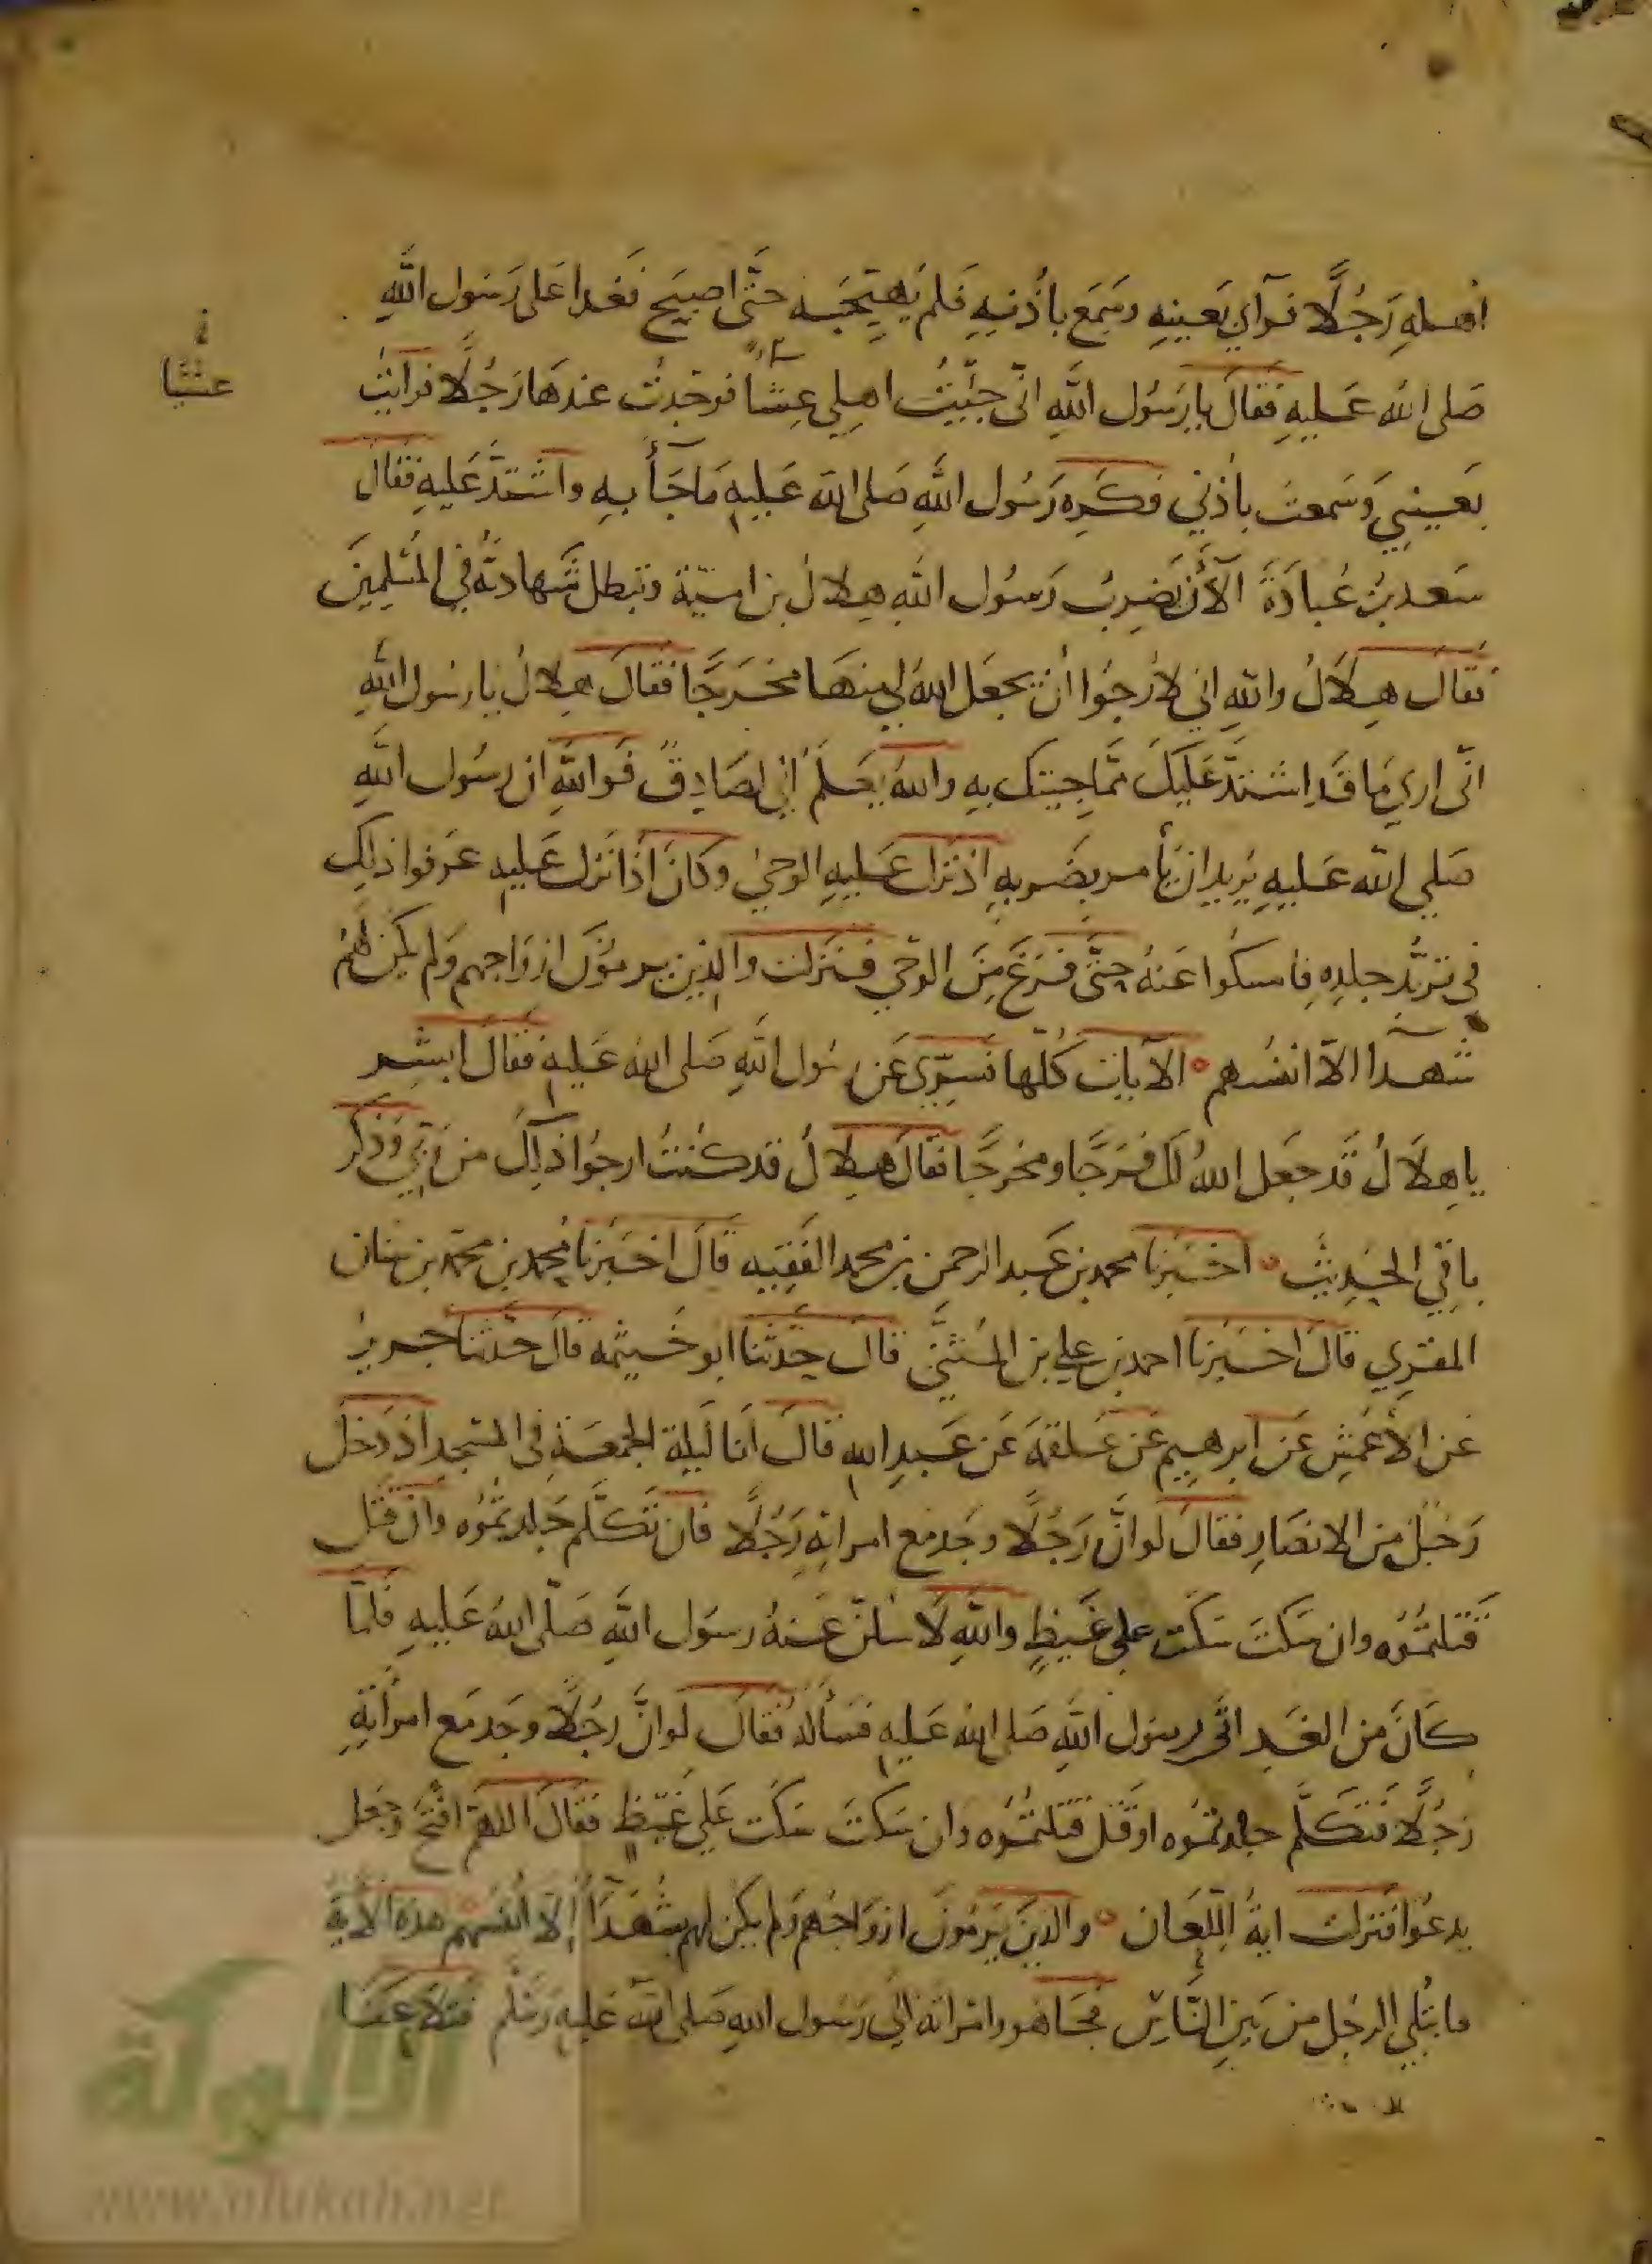 اهله رَجُلًا فرآي بعينيه وسَمِعَ باُذنيهِ فَلم يُهَيّجه حَتَّى اصبَحَ فَغدا عَلى رَسُول اللَّهِ
صَلى الله عَليهِ فَقالَ يا رَسُول اللَّهِ انّى جيّتُ اهلي عِشآ فوجَدتُ عندهَا رَجُلًا فرايت
عشيا
بعَيني وَسَمعتُ باذني فكَرِه رَسُول اللَّهِ صَلى الله عَليهِ مَا جَآءَ بهِ واشتدَّ عَليهِ فَقالَ
سَعد بنُ عُبادَةَ الآن يَضربُ رَسُول اللهِ هِلالُ بن اميّة وتبطل شَهادتُه في المُسْلمينَ
فقالَ هِلَالُ واللهِ اني لاَرجُوا أن يجعَل اللهُ لي منهَا مخرَجًا فقَالَ هِلالُ يا رسُول اللهِ
انّى اري مَا قَدِ اشتدَّ عَليكَ ممَّا جيتك بهِ واللهُ يَعلَمُ اِني لصَادِقٌ فَواللَّهِ ان رسُول اللَّهِ
صَلي الله عَليهِ يُريد ان يأمر بضَربهِ اذ نَزلَ عَليهِ الوحيُ وكانَ اذا نَزل عَليهِ عَرفوا ذلك
في تربُّد جلدِهِ فامسكُوا عَنهُ حتَّى فرَغَ مِنَ الوَحي فنَزلت والذين يرمُونَ ازوَاجهم وَلم يكن لهُم
شُهدآ الاّ انفسُهم الآيات كُلّها فسُرِّى عَن رسُول اللَّهِ صَلى الله عَليهِ فَقالَ ابشر
يا هِلَالُ قَد جعَل اللهُ لكَ فَرَجًا ومخرجًا فقالَ هِلالُ قد كُنتُ ارجُوا ذلكَ من رَبّي وَذكر
باقي الحَديث اخبَرنا محمد بن عَبد الرحمن بن محمد الفَقيه قالَ اخبَرنا محمد بن محمّد بن سنان
المقرِي قالَ اخبَرنا احمد بن علي بن المُثنَّى قالَ حَدّثنا ابو خَيثمه قالَ حَدّثنا جرير
عَن الأعْمشِ عَن ابرهيم عَن عَلقمَة عَن عَبدِ اللهِ قالَ اَنا لَيلة الجمعَة في المسْجد اذ دَخلَ
رَجُلٌ من الانصَارِ فقالَ لو انَّ رَجُلًا وجَد مَع امراتِهِ رَجُلًا فان تَكلَّم جَلدتمُوُه وان قتل
قَتلتمُوُه وان سَكتَ سَكَت علي غَيظٍ واللهِ لَا سئلنّ عَنهُ رسوَل اللَّهِ صَلّى اللهُ عَليهِ فَلمّا
كَانَ من الغَد اتى رسول اللَّهِ صَلى الله عَليهِ فسَألهُ فَقالَ لَو انَّ رجُلًا وجَد مَع امرَأتِهِ
رَجُلًا فتَكلَّم جلدتمُوه او قَتل قتلتُمُوه وان سَكتَ سَكَت عَلي غَيظٍ فقَالَ اللهمّ افتَح وجَعل
يدعُوا فنزلت ايةُ اللّعَان والذينَ يَرمُونَ ازوَاجَهُم وَلم يكن لهم شُهَدَآءُ إلا انفسُهم هذه الآية
فابتُلي الرجُل من بَينِ النَّاسِ فجَآ هو وامرَاته الي رَسُول اللهِ صَلى اللهُ عَليهِ وسَلّم فتلاعنَا
الألوكة
www.alukah.net